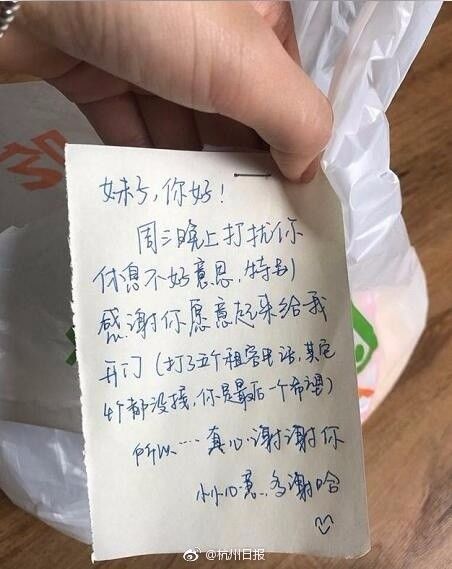 妹子,你好!
周二晚上打扰你
休息不好意思,特别
感谢你愿意起来给我
开门(打了五个租客电话,其它
4个都没接,你是最后一个希望)
所以……真心谢谢你
小小心意..多谢哈
@杭州日报